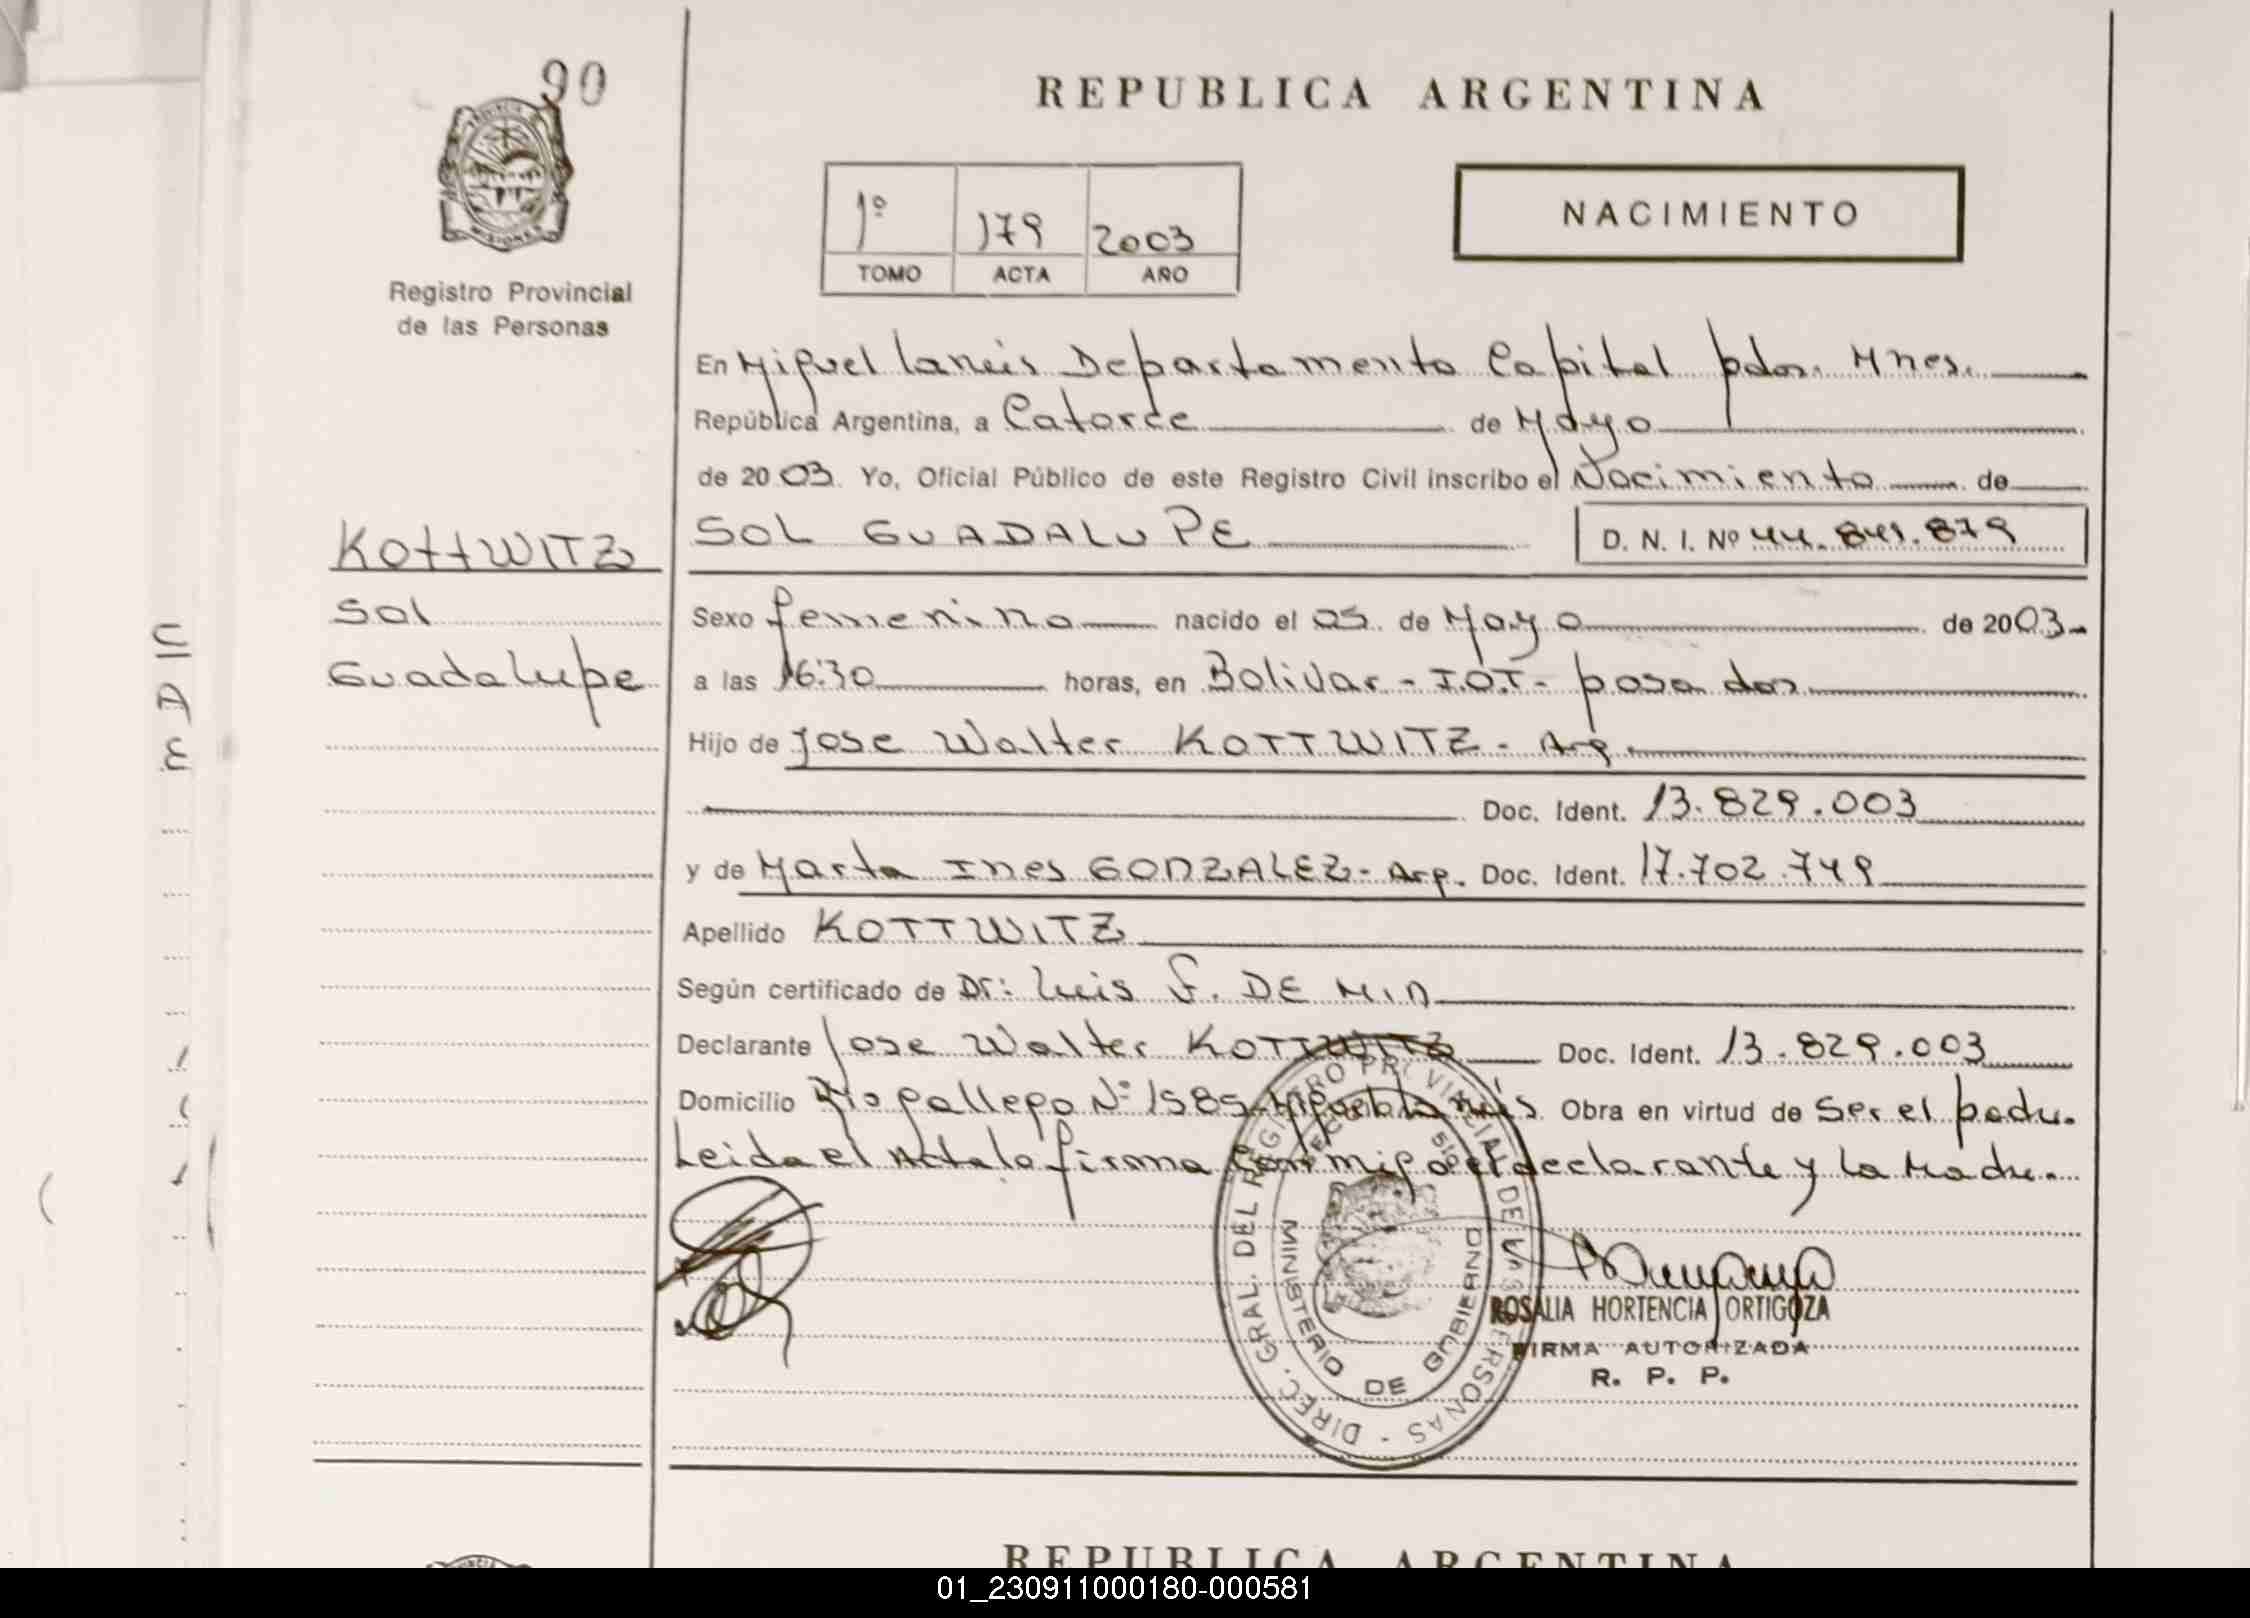 90
REPUBLICA ARGENTINA
PROVINCIA
MISIONES
Registro Provincial
de las Personas
1º 179 2003
TOMO ACTA AÑO
NACIMIENTO
En Miguel Lanús Departamento Capital pdas. Mnes.
República Argentina, a Catorce de Mayo
de 2003. Yo, Oficial Público de este Registro Civil inscribo el Nacimiento de
SOL GUADALUPE D. N. I. Nº 44.841.879
KOTTWITZ
Sol
Guadalupe
Sexo femenino nacido el 05 de Mayo de 2003
a las 16:30 horas, en Bolivar - I.O.T - posadas
Hijo de Jose Walter KOTTWITZ - Arg.
Doc. Ident. 13.829.003
y de Marta Ines GONZALEZ - Arg. Doc. Ident. 17.702.749
Apellido KOTTWITZ
Según certificado de Dr: Luis F. DE MIN
Declarante Jose Walter KOTTWITZ Doc. Ident. 13.829.003
Domicilio Rio gallego Nº 1585 Miguel Lanús Obra en virtud de ser el padre.
Leida el Acta la firma con migo el declarante y la Madre.
DIREC. GRAL. DEL REGISTRO PROVINCIAL DE LAS PERSONAS
MINISTERIO DE GOBIERNO
ROSALIA HORTENCIA ORTIGOZA
FIRMA AUTORIZADA
R. P. P.
REPUBLICA ARGENTINA
01_230911000180-000581